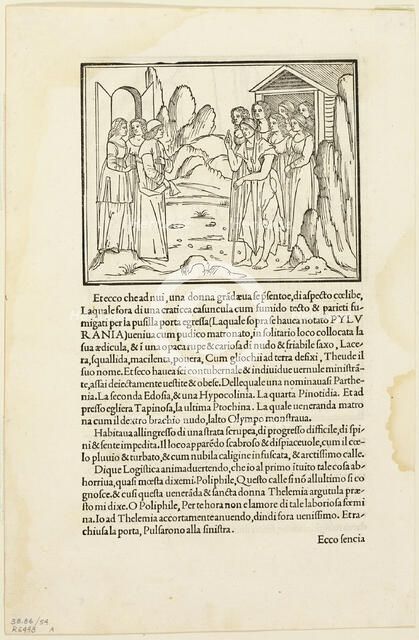 Et ecco che ad nui, una donna grãdæua se p̃sentoe, di aspecto cœlibe,
Laquale fora di una craticea casuncula cum fumido tecto & parieti fu-
migati per la pusilla porta egressa (Laquale sopra se hauea notato PYLV
RANIA) ueniua cum pudico matronato, in solitario loco collocata la
sua ædicula, & i una opaca rupe & cariosa di nudo & friabile saxo, Lace-
ra, squallida, macilenta, pouera, Cum gliochii ad terra defixi, Theude il
suo nome. Et seco hauea sei contubernale & indiuidue uernule ministrã-
te, assai deiectamente uestite & obese. Delle quale una nominauasi Parthe-
nia. La seconda Edosia, & una Hypocolinia. La quarta Pinotidia. Et ad
presso egli era Tapinosa, la ultima Ptochina. La quale ueneranda matro
na cum il dextro brachio nudo, lalto Olympo monstraua.
Habitaua allingresso di una strata scrupea, di progresso difficile, di spi-
ni & sente impedita. Il loco apparédo scabroso & displaceuole, cum il cœ-
lo pluuio & turbato, & cum nubila caligine infuscata, & arctissimo calle.
Dique Logistica animaduertendo, che io al primo ítuito tale cosa ab-
horriua, quasi mœsta dixemi. Poliphile, Questo calle si nõ allultimo si co
gnosce. & cusi questa uenerãda & sancta donna Thelemia argutula præ-
sto mi dixe. O Poliphile, Per te hora non e lamore di tale laboriosa femi
na. Io ad Thelemia accortamente anuendo, dindi fora uenissimo. Et ra-
chiusa la porta, Pulsarono alla sinistra.
Ecco sencia
38.86/54
R6498 A